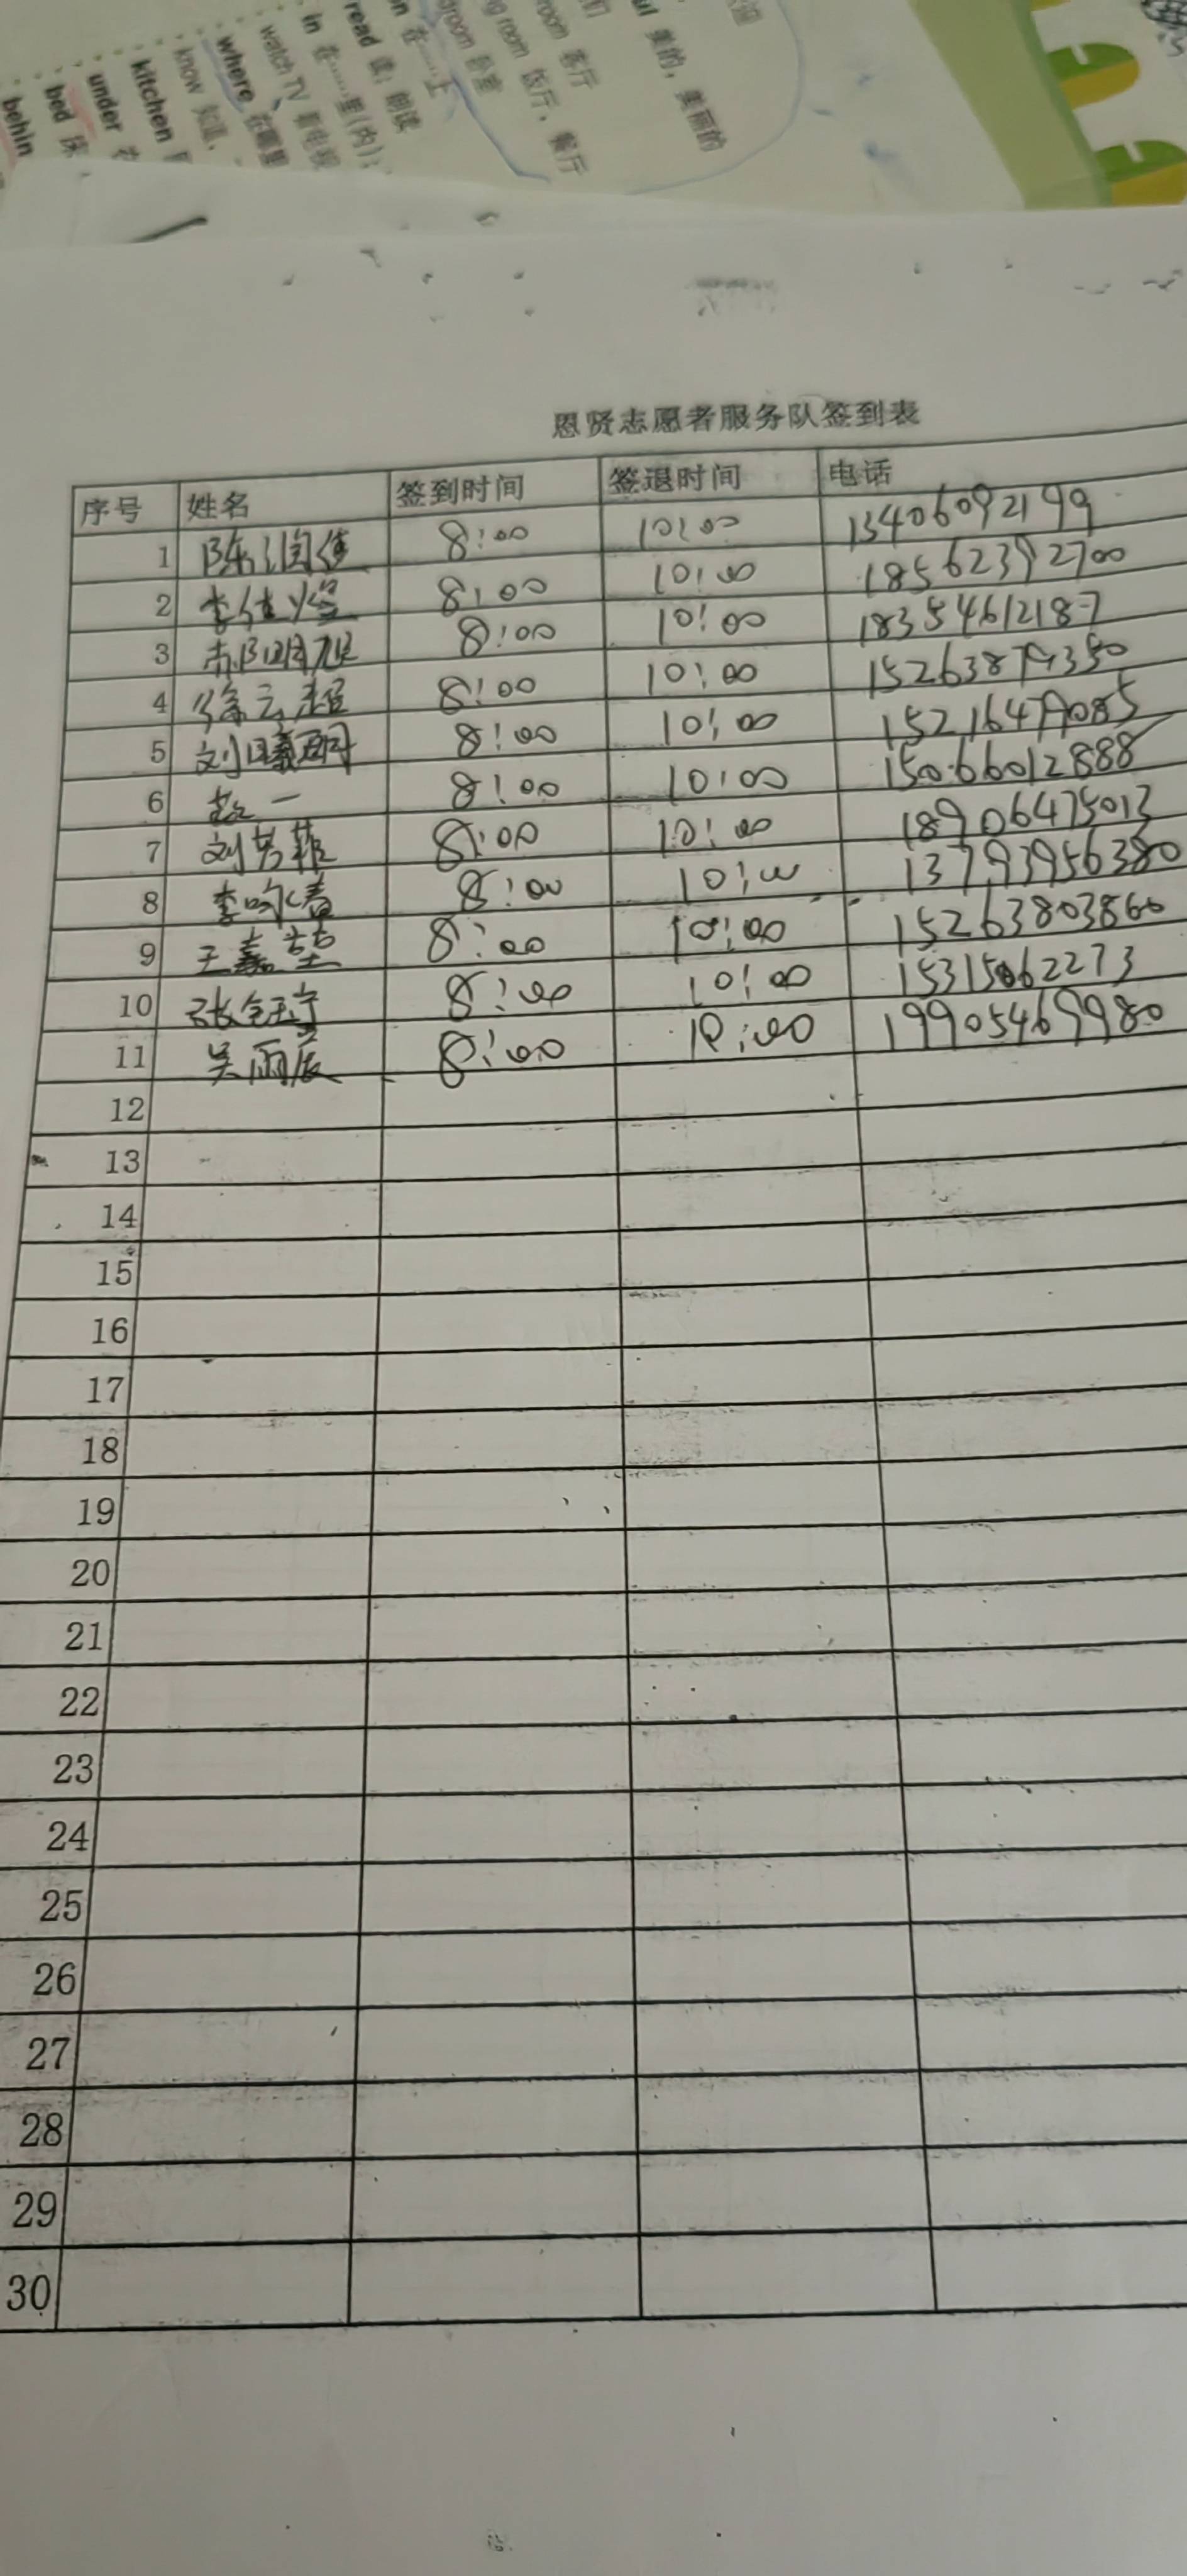 read 读；朗读
in 在……里(内)；
watch TV 看电视
where 在哪里
know 知道，
kitchen
under 在
bed 床
behin
在……上
room 卧室
room 饭厅，餐厅
room 客厅
美的，美丽的
恩贤志愿者服务队签到表
序号 姓名 签到时间 签退时间 电话
1 8:00 10:00 13406092199
2 李佳 8:00 10:00 18562392700
3 8:00 10:00 18354612187
4 徐云超 8:00 10:00 15263879350
5 刘曦 8:00 10:00
6 赵一 8:00 10:00 15066012888
7 刘芳菲 8:00 10:00 18906475013
8 李 8:00 10:00 13793956380
9 王嘉喆 8:00 10:00 15263803860
10 张钰宁 8:00 10:00 15315062273
11 吴雨宸 8:00 10:00 19905469980
12
13
14
15
16
17
18
19
20
21
22
23
24
25
26
27
28
29
30